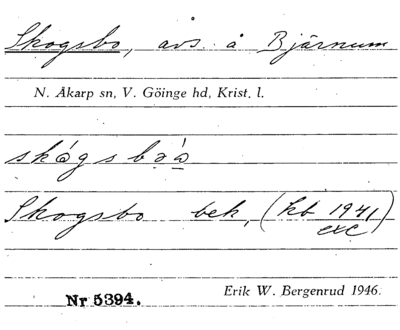 Skogsbo, avs. å Bjärnum
N. Åkarp sn, V. Göinge hd, Krist. l.
Skogsbo bek, (kb 1941)
exc
Nr 5394. Erik W. Bergenrud 1946.